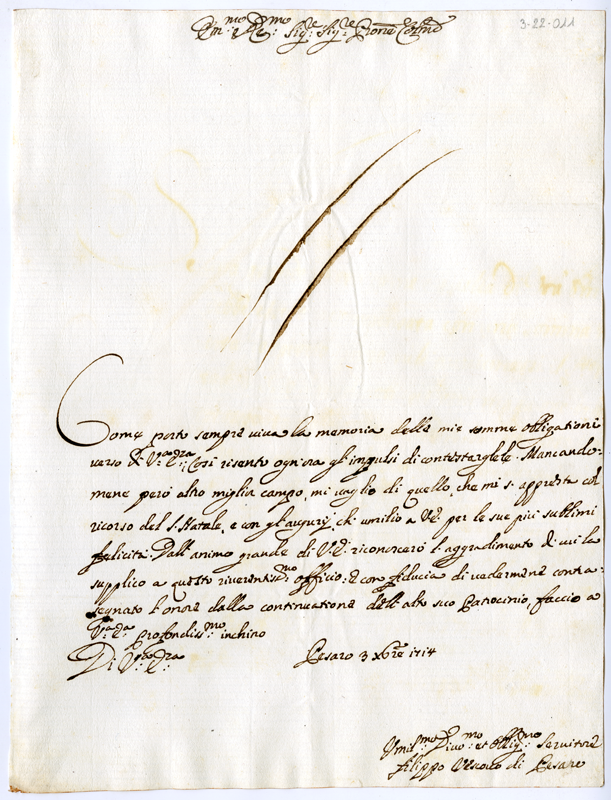 3-22-011
Em.mo e R.mo Sig.re Sig.re Prone Col.mo
Come porto sempre viva la memoria delle mie somme obligationi
verso di V.ra Em.za, così risento ogn'ora gl'impulsi di contestarglele. Mancando-
mene però altro miglior campo, mi vaglio di quello, che mi s'appresta col
ricorso del S. Natale, e con gl'augurij, ch'umilio a V.E. per le sue più sublimi
felicità. Dall'animo grande di V.E. riconoscerò l'aggradimento di cui la
supplico a questo riverentis.mo officio: e con fiducia di vedermene conta-
segnato l'onore dalla continuatione dell'alto suo Patrocinio, faccio a
V.ra Em.za profondiss.mo inchino
Di V.ra Em.za
Pesaro 3 Xbre 1714
Umil.mo Divo.mo et Obblig.mo Servitore
Filippo Vescovo di Pesaro